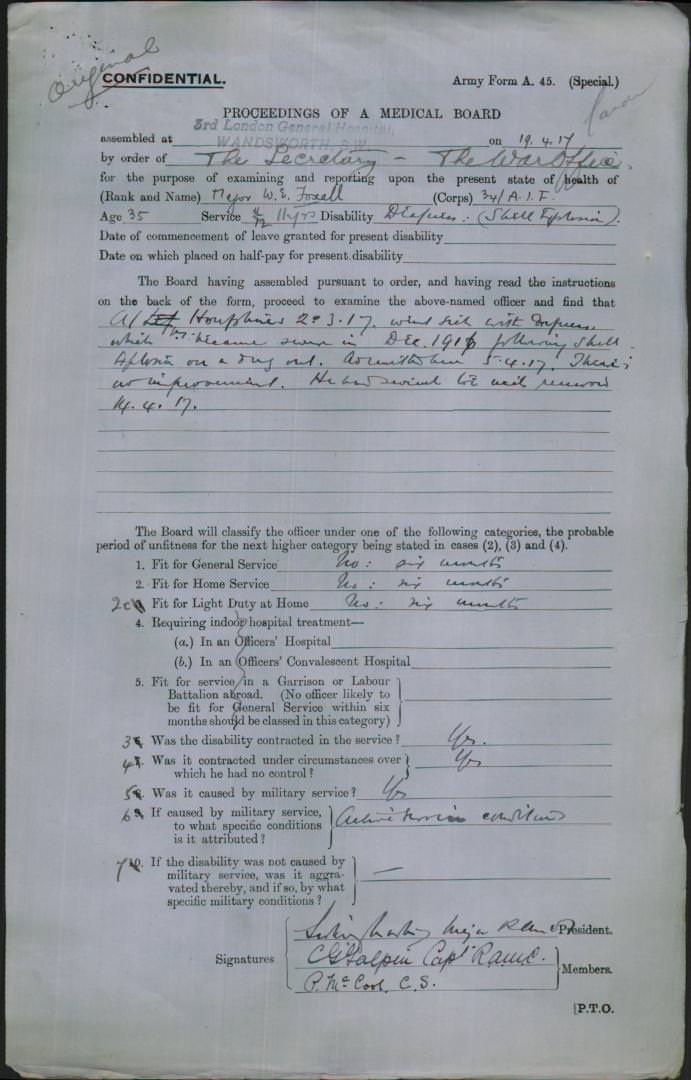 Original
CONFIDENTIAL.
Army Form A. 45. (Special.)
PROCEEDINGS OF A MEDICAL BOARD
3rd London General Hospital,
assembled at WANDSWORTH, S.W. on 19.4.17
by order of The Secretary – The War Office.
for the purpose of examining and reporting upon the present state of health of
(Rank and Name) Major W.E. Foxall (Corps) 34/A.I.F.
Age 35 Service 11 yrs Disability Deafness. (Shell Explosion).
Date of commencement of leave granted for present disability
Date on which placed on half-pay for present disability
The Board having assembled pursuant to order, and having read the instructions
on the back of the form, proceed to examine the above-named officer and find that
At 2.3.17. went sick with Deafness
which became severe in Dec. 1916 following shell
on a dug out. Admitted here 5.4.17. There is
no improvement. He had removed
14.4.17.
The Board will classify the officer under one of the following categories, the probable
period of unfitness for the next higher category being stated in cases (2), (3) and (4).
1. Fit for General Service No: six months
2. Fit for Home Service No: six months
Fit for Light Duty at Home No: six months
4. Requiring indoor hospital treatment—
(a.) In an Officers' Hospital
(b.) In an Officers' Convalescent Hospital
5. Fit for service in a Garrison or Labour
Battalion abroad. (No officer likely to
be fit for General Service within six
months should be classed in this category)
3 6. Was the disability contracted in the service? Yes.
4 7. Was it contracted under circumstances over
which he had no control? Yes
5 8. Was it caused by military service? Yes
6 9. If caused by military service,
to what specific conditions
is it attributed? Active Service conditions
7 10. If the disability was not caused by
military service, was it aggra-
vated thereby, and if so, by what
specific military conditions? —
Major R.A.M.C. President.
Signatures
C G Galpin Capt RAMC.
Members.
P. McCool, C.S.
[P.T.O.